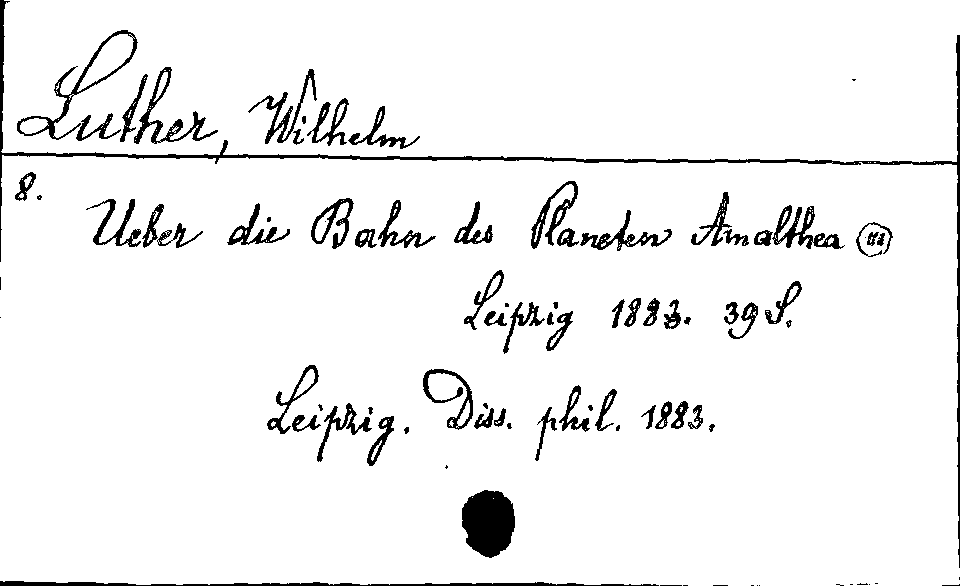 Luther, Wilhelm
8.
Ueber die Bahn des Planeten Amalthea (113)
Leipzig 1883. 39 S.
Leipzig. Diss. phil. 1883.